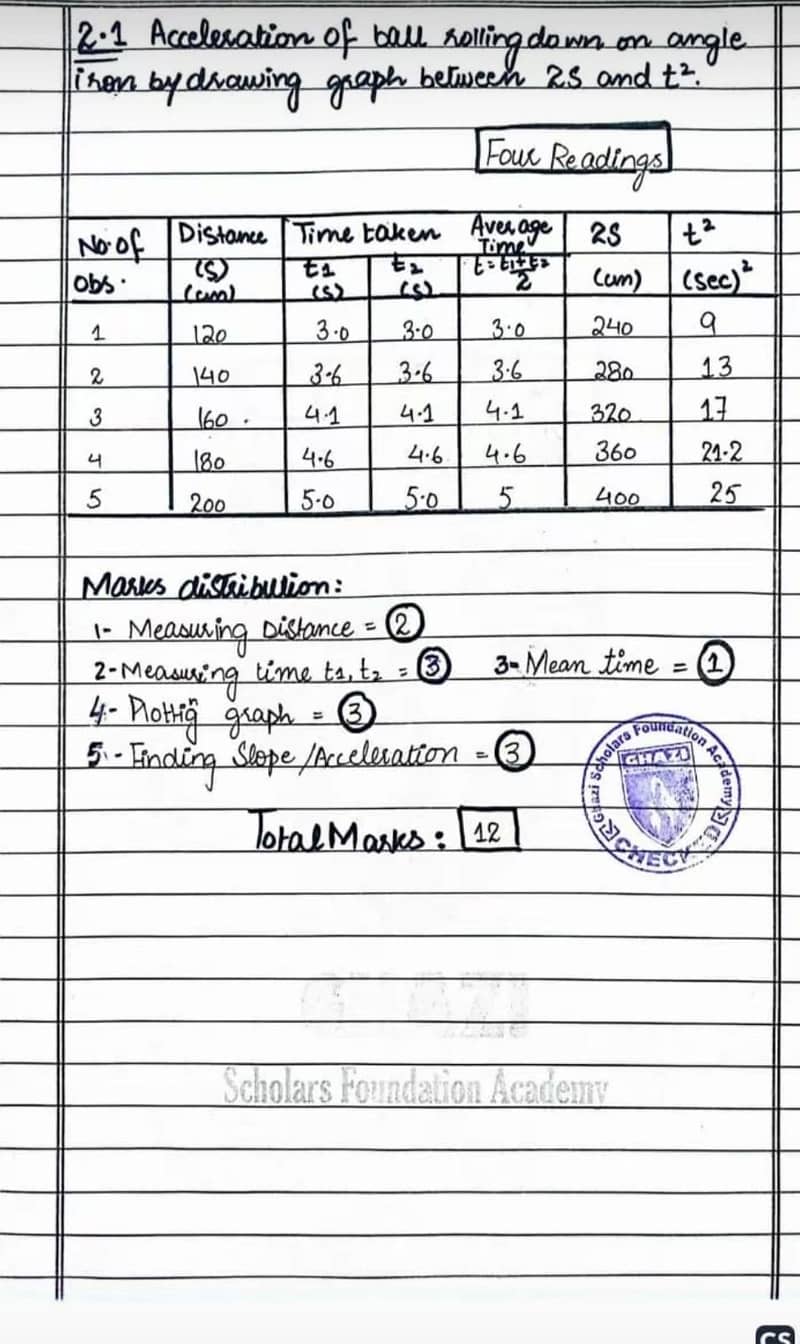 2.1 Acceleration of ball rolling down on angle
iron by drawing graph between 2S and t².
Four Readings
No. of obs. | Distance (S) (cm) | Time taken t1 (s) | t2 (s) | Average Time t = t1+t2/2 | 2S (cm) | t² (sec)²
1 120 3.0 3.0 3.0 240 9
2 140 3.6 3.6 3.6 280 13
3 160 . 4.1 4.1 4.1 320 17
4 180 4.6 4.6 4.6 360 21.2
5 200 5.0 5.0 5 400 25
Marks distribution:
1- Measuring Distance = 2
2- Measuring time t1, t2 = 3 3- Mean time = 1
4- Plottig graph = 3
5- Finding Slope/Acceleration = 3
Total Marks: 12
Ghazi Scholars Foundation Academy
GHAZI
CHECKED
GHAZI
Scholars Foundation Academy
CS